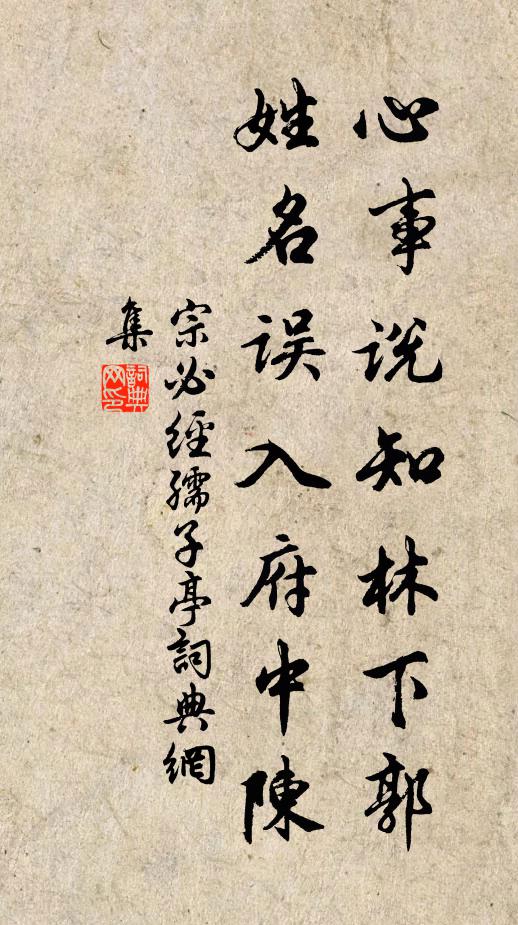 心事说知林下郭
姓名误入府中陳
宗必經孺子亭詞典網
集
詞典網印